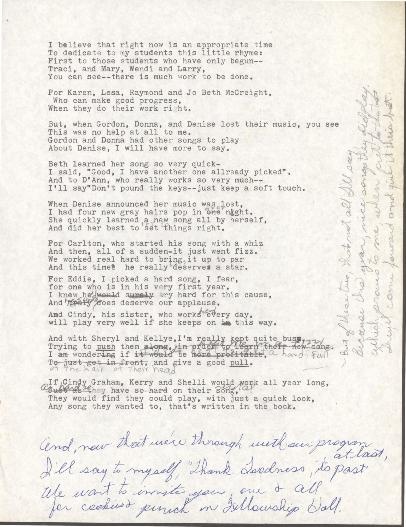 I believe that right now is an appropriate time
To dedicate to my students this little rhyme:
First to those students who have only begun--
Traci, and Mary, Wendi and Larry,
You can see--there is much work to be done.
For Karen, Lesa, Raymond and Jo Beth McCreight,
Who can make good progress,
When they do their work right.
But, when Gordon, Donna, and Denise lost their music, you see
This was no help at all to me.
Gordon and Donna had other songs to play
About Denise, I will have more to say.
Beth learned her song so very quick-
I said, "Good, I have another one allready picked",
And to D'Ann, who really works so very much--
I'll say"Don't pound the keys--just keep a soft touch.
When Denise announced her music was lost,
I had four new gray hairs pop in one night.
She quickly learned a new song all by herself,
And did her best to set things right.
For Carlton, who started his song with a whiz
And then, all of a sudden-it just went fizz.
We worked real hard to bring it up to par
And this time he really deserves a star.
For Eddie, I picked a hard song, I fear,
for one who is in his very first year,
I knew he would surely try hard for this cause,
And does deserve our applause,
And Cindy, his sister, who works every day,
will play very well if she keeps on this way.
And with Sheryl and Kellye, I'm really kept quite busy
Trying to push them along, in order to learn their new song.
I am wondering if it would be more profitable, a hand full
of the hair of their head
To just get in front, and give a good pull.
If Cindy Graham, Kerry and Shelli would work all year long,
Just as they have so hard on their song,
They would find they could play, with just a quick look,
Any song they wanted to, that's written in the book.
And, now that we're through with our program
at last,
I'll say to myself, "Thank Goodness, its past
We want to invite you, one & all
for cookies & punch in Fellowship Hall.